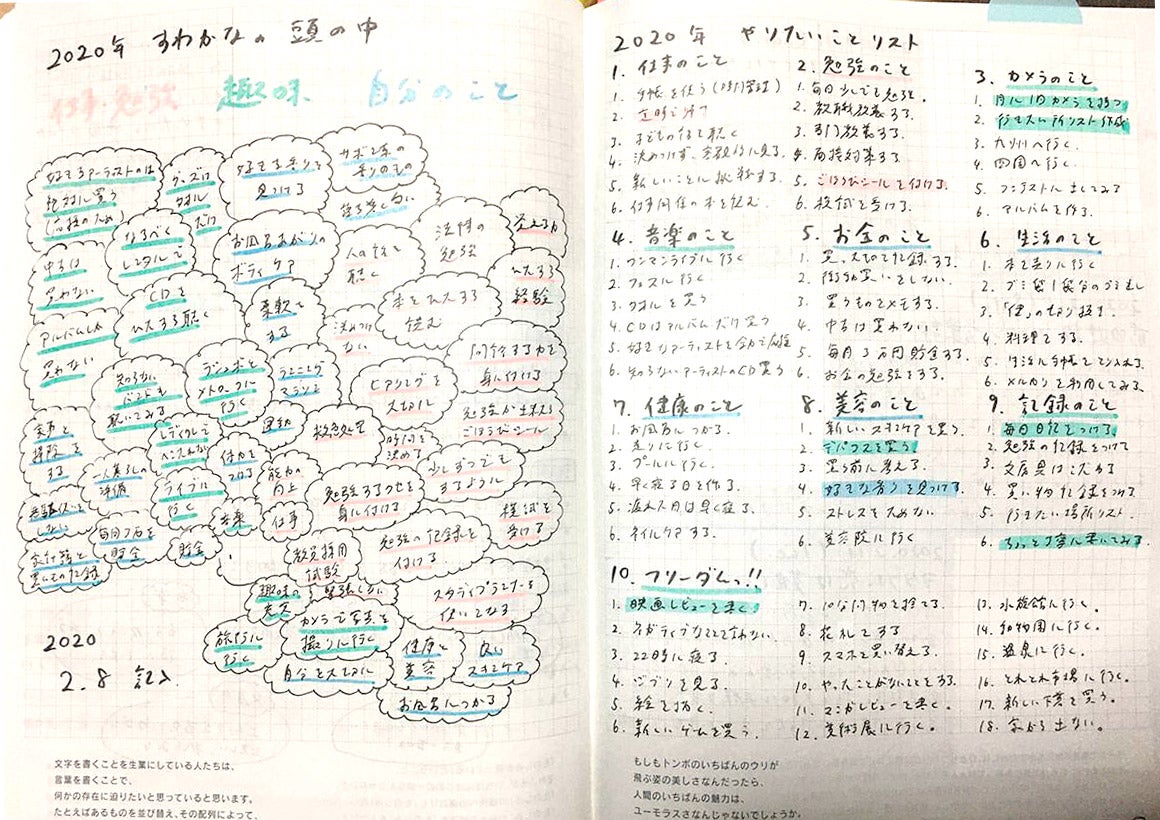 2020年 すわかなの 頭の中
仕事・勉強 趣味 自分のこと
好きなアーティストのは
絶対に買う
グッズは
タオル
だけ
好きな香りを
見つける
サボン系の
香りのもの
なるべく
レンタルで
お風呂あがりの
ボディケア
人の話を
聴く
法律の
勉強
覚える力
中古は
買わない
CDを
ひたすら聴く
柔軟を
する
決めつけ
ない
本をひたすら
読む
ひたすら
経験
アルバムしか
買わない
知らない
バンドも
聴いてみる
ランニング
マラソン
ヒアリングを
大切に
身に付ける
勉強が出来たら
ごほうびシール
家事と
掃除を
する
一人暮らしの
準備
レディクレで
へこたれない
ライブに
行く
体力を
つける
運動
救急処置
時間を
決める
少しずつでも
するように
能力の
向上
勉強するくせを
身に付ける
模試を
受ける
毎月3万を
貯金
貯金
音楽
仕事
教員採用
試験
勉強の記録を
付ける
交付語と
買いもの記録
趣味の
充実
緊張しない
スタディプランナーを
使いこなす
旅行に
行く
カメラで写真を
撮りに行く
健康と
美容
良い
スキンケア
自分を大切に
お風呂につかる
2020
2.8 記入
文字を書くことを生業にしている人たちは、
言葉を書くことで、
何かの存在に迫りたいと思っていると思います。
たとえばあるものを並び替え、その配列によって、
2020年 やりたいことリスト
1. 仕事のこと
1. 手帳を使う(時間管理)
2. 定時で帰る
3. 子どもの話を聴く
4. 決めつけず、客観的に見る
5. 新しいことに挑戦する。
6. 仕事関係の本を読む。
2. 勉強のこと
1. 毎日少しでも勉強。
2. 教職教養する。
3. 専門教養する
4. 面接対策する
5. ごほうびシールを付ける。
6. 模試を受ける。
3. カメラのこと
1. 月に1回カメラを持つ
2. 行きたい所リスト作成
3. 九州へ行く。
4. 四国へ行く。
5. コンテストに出してみる
6. アルバムを作る。
4. 音楽のこと
1. ワンマンライブに行く
2. フェスに行く。
3. タオルを買う
4. CDはアルバムだけ買う
5. 好きなアーティストを全力で応援
6. 知らないアーティストのCD買う
5. お金のこと
1. 買った物を記録する。
2. 衝動買いをしない。
3. 買うものをメモする。
4. 中古は買わない
5. 毎月3万円貯金する。
6. お金の勉強をする。
6. 生活のこと
1. 本を売りに行く
2. ゴミ袋1袋分のゴミ出し
4. 料理する。
5. 生活に手帳をとり入れる。
6. メルカリを利用してみる。
7. 健康のこと
1. お風呂につかる。
2. 走りに行く。
3. プールに行く。
4. 早く寝る日を作る。
5. 疲れた日は早く寝る。
6. ネイルケアする。
8. 美容のこと
1. 新しいスキンケアを買う。
2. デパコスを買う
3. 買う前に考える。
4. 好きな香りを見つける。
5. ストレスをためない
6. 美容院に行く
9. 記録のこと
1. 毎日日記をつける。
2. 勉強の記録をつける
3. 文房具はこだわる
4. 買い物記録をつける
5. 行きたい場所リスト.
6. もっと丁寧に書いてみる。
10. フリーダムっ!!
1. 映画レビューを書く。
2. ネガティブなことを言わない。
3. 22時に寝る。
4. ジブリを見る。
5. 絵を描く。
6. 新しいゲームを買う。
7. 10年前の物を捨てる.
8. 花札をする
9. スマホを買い替える。
10. やったことがないことをする.
11. マンガレビューを書く。
12. 美術展に行く。
13. 水族館に行く。
14. 動物園に行く。
15. 温泉に行く。
16. とれとれ市場に行く。
17. 新しい下着を買う。
18. 家から出ない。
もしもトンボのいちばんのウリが
飛ぶ姿の美しさなんだったら、
人間のいちばんの魅力は、
ユーモラスさなんじゃないでしょうか。